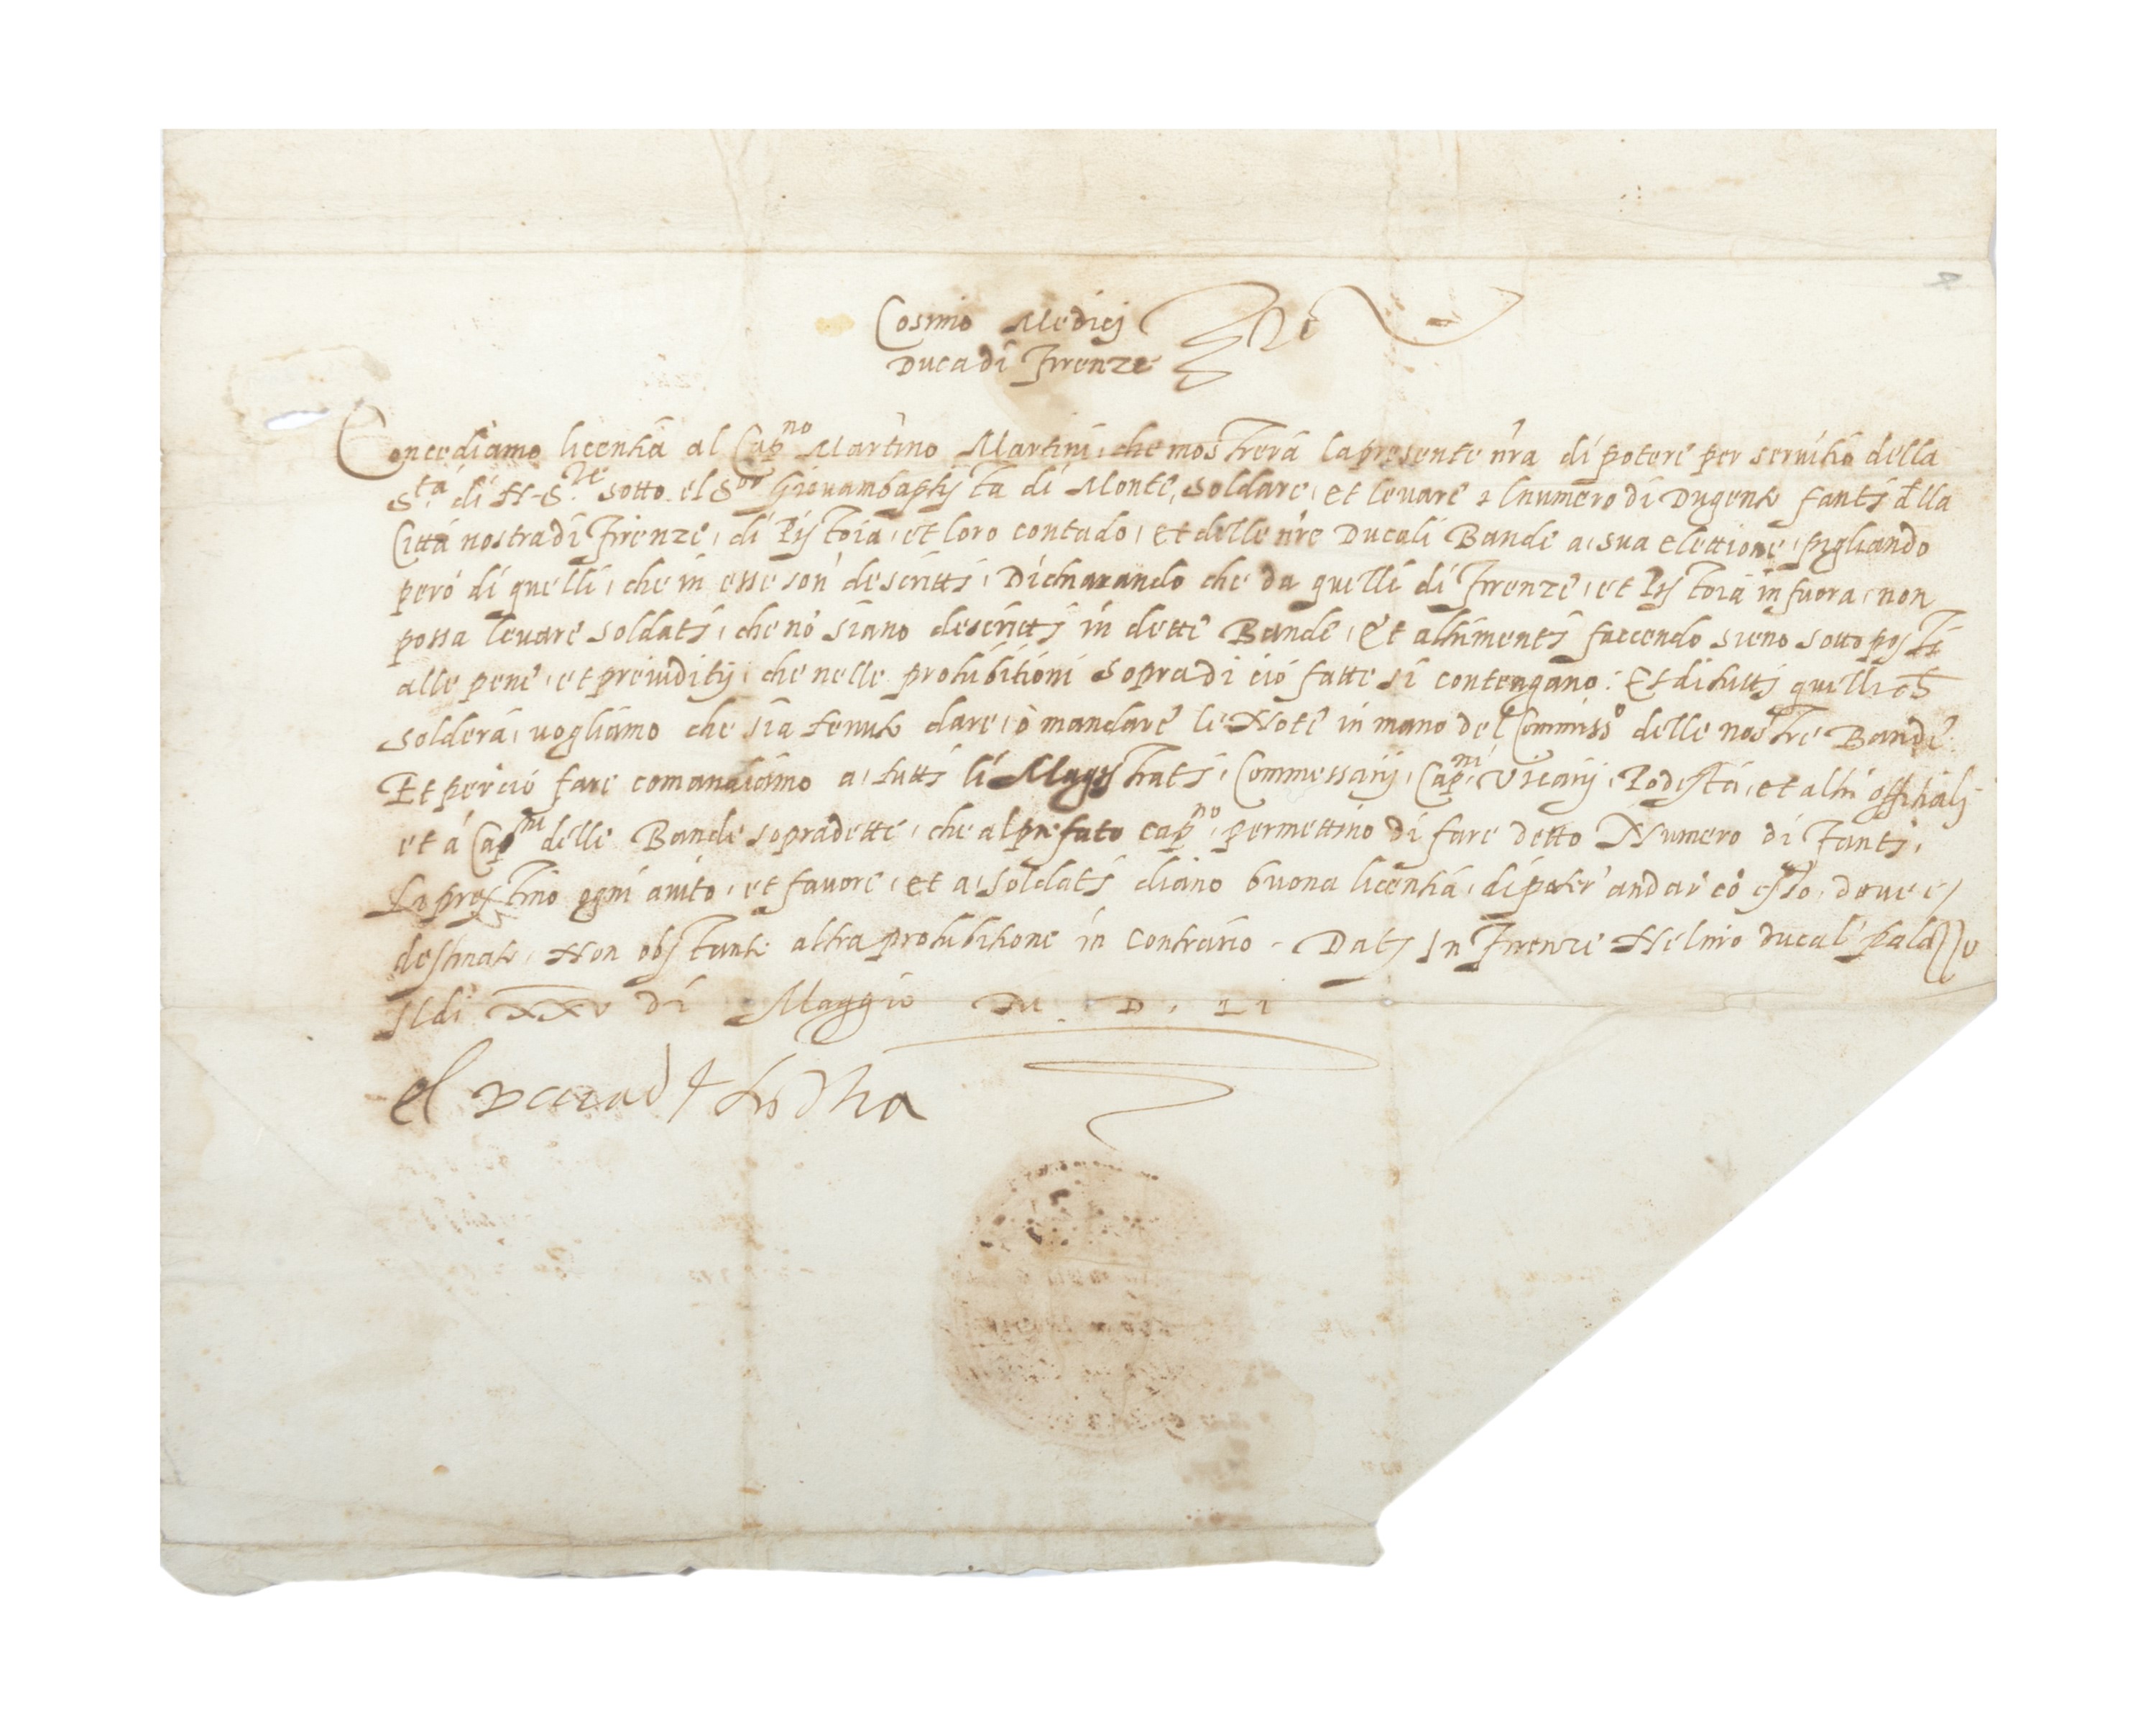 Cosmo Medici
Duca di Firenze
Concediamo licentia al Cap.no Martino Martini, che mostrerà la presente nr̃a di potere per servitio della
S.tà di N. S.re sotto el S.or Giovambaptista di Monte, soldare, et levare il numero di Dugento fanti d̃lla
Città nostra di Firenze, di Pistoia, et loro contado, et delle nr̃e Ducali Bande a, sua elettione, pigliando
però di quelli, che in esse son descritti, Dichiarando che da quelli di Firenze, et Pistoia in fuora, non
possa levare soldati, che nõ siano descritti in dette Bande, Et altrimenti faccendo sieno sottoposti
alle pene, et preiuditij, che nelle prohibitioni sopra di ciò fatte si contengano: Et di tutti quelli ch̃
solderà, vogliamo che sia tenuto dare, ò mandare le Note in mano del Commiss.o delle nostre Bande.
Et perciò fare comandiamo a, tutti li Magistrati, Commessarij, Cap.ni, Vicarij, Podestà, et altri offitiali
et à Cap.ni delle Bande sopradette, che al prefato cap.no, permettino di fare detto Numero di Fanti,
Li prestino ogni aiuto, et favore, et a, soldati diano buona licentia, di poter andar cõ esso, dove è
destinato, Non obstante altra prohibitione in contrario. Dat. In Firenze Nel nr̃o ducal palazzo
Il dì XXV di Maggio M. D. LI
el Duca di Fiorenza